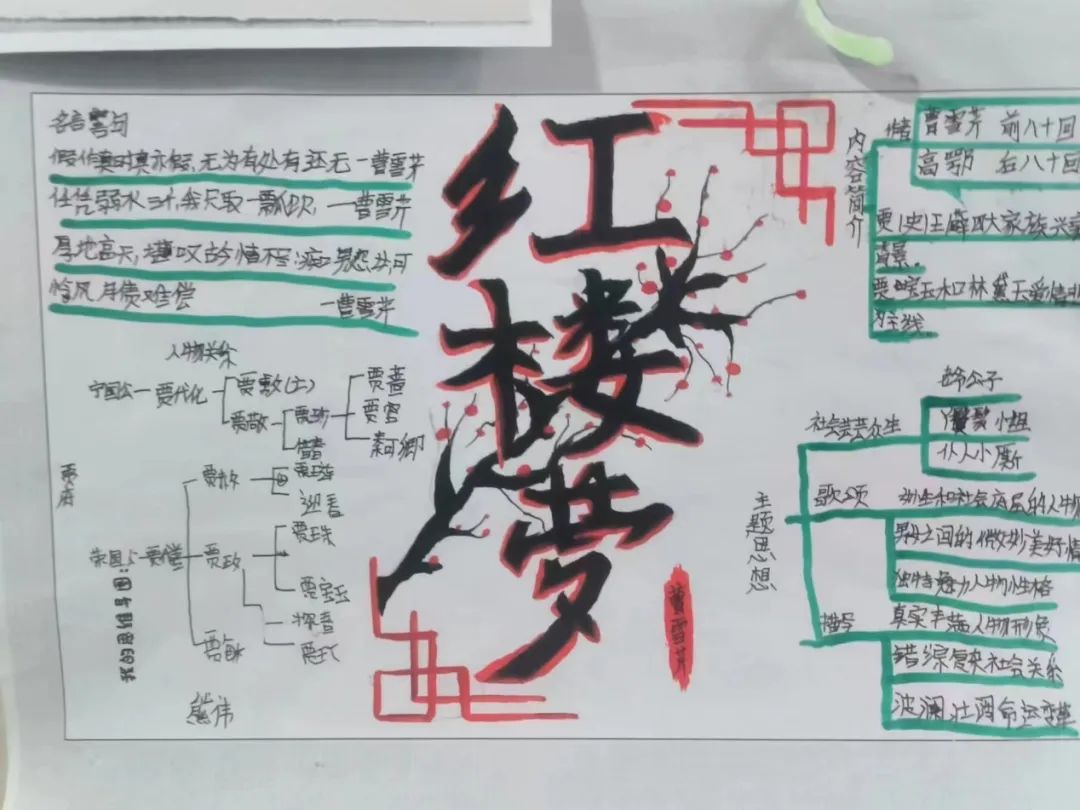 名言警句
假作真时真亦假,无为有处有还无 一曹雪芹
任凭弱水三千,我只取一瓢饮, 一曹雪芹
厚地高天,堪叹古今情不尽;痴男怨女,可
怜风月债难偿 一曹雪芹
人物关系
贾府
宁国公一贾代化
贾敷(土)
贾敬
贾珍
贾蔷
贾蓉
秦可卿
惜春
荣国公
贾赦
迎春
贾政
贾珠
贾宝玉
探春
贾环
贾敏
我的思维导图:
熊伟
红楼梦
曹雪芹
内容简介
作者
曹雪芹 前八十回
高鹗 后八十回
贾(史)王薛四大家族兴衰
背景.
贾宝玉和林黛玉爱情悲
为主线
主题思想
社会芸芸众生
公子
小姐
仆人小厮
歌颂
和社会底层的人物
男女之间的微妙美好情
独特魅力人物性格
描写
真实丰满人物形象
错综复杂社会关系
波澜壮阔命运变革